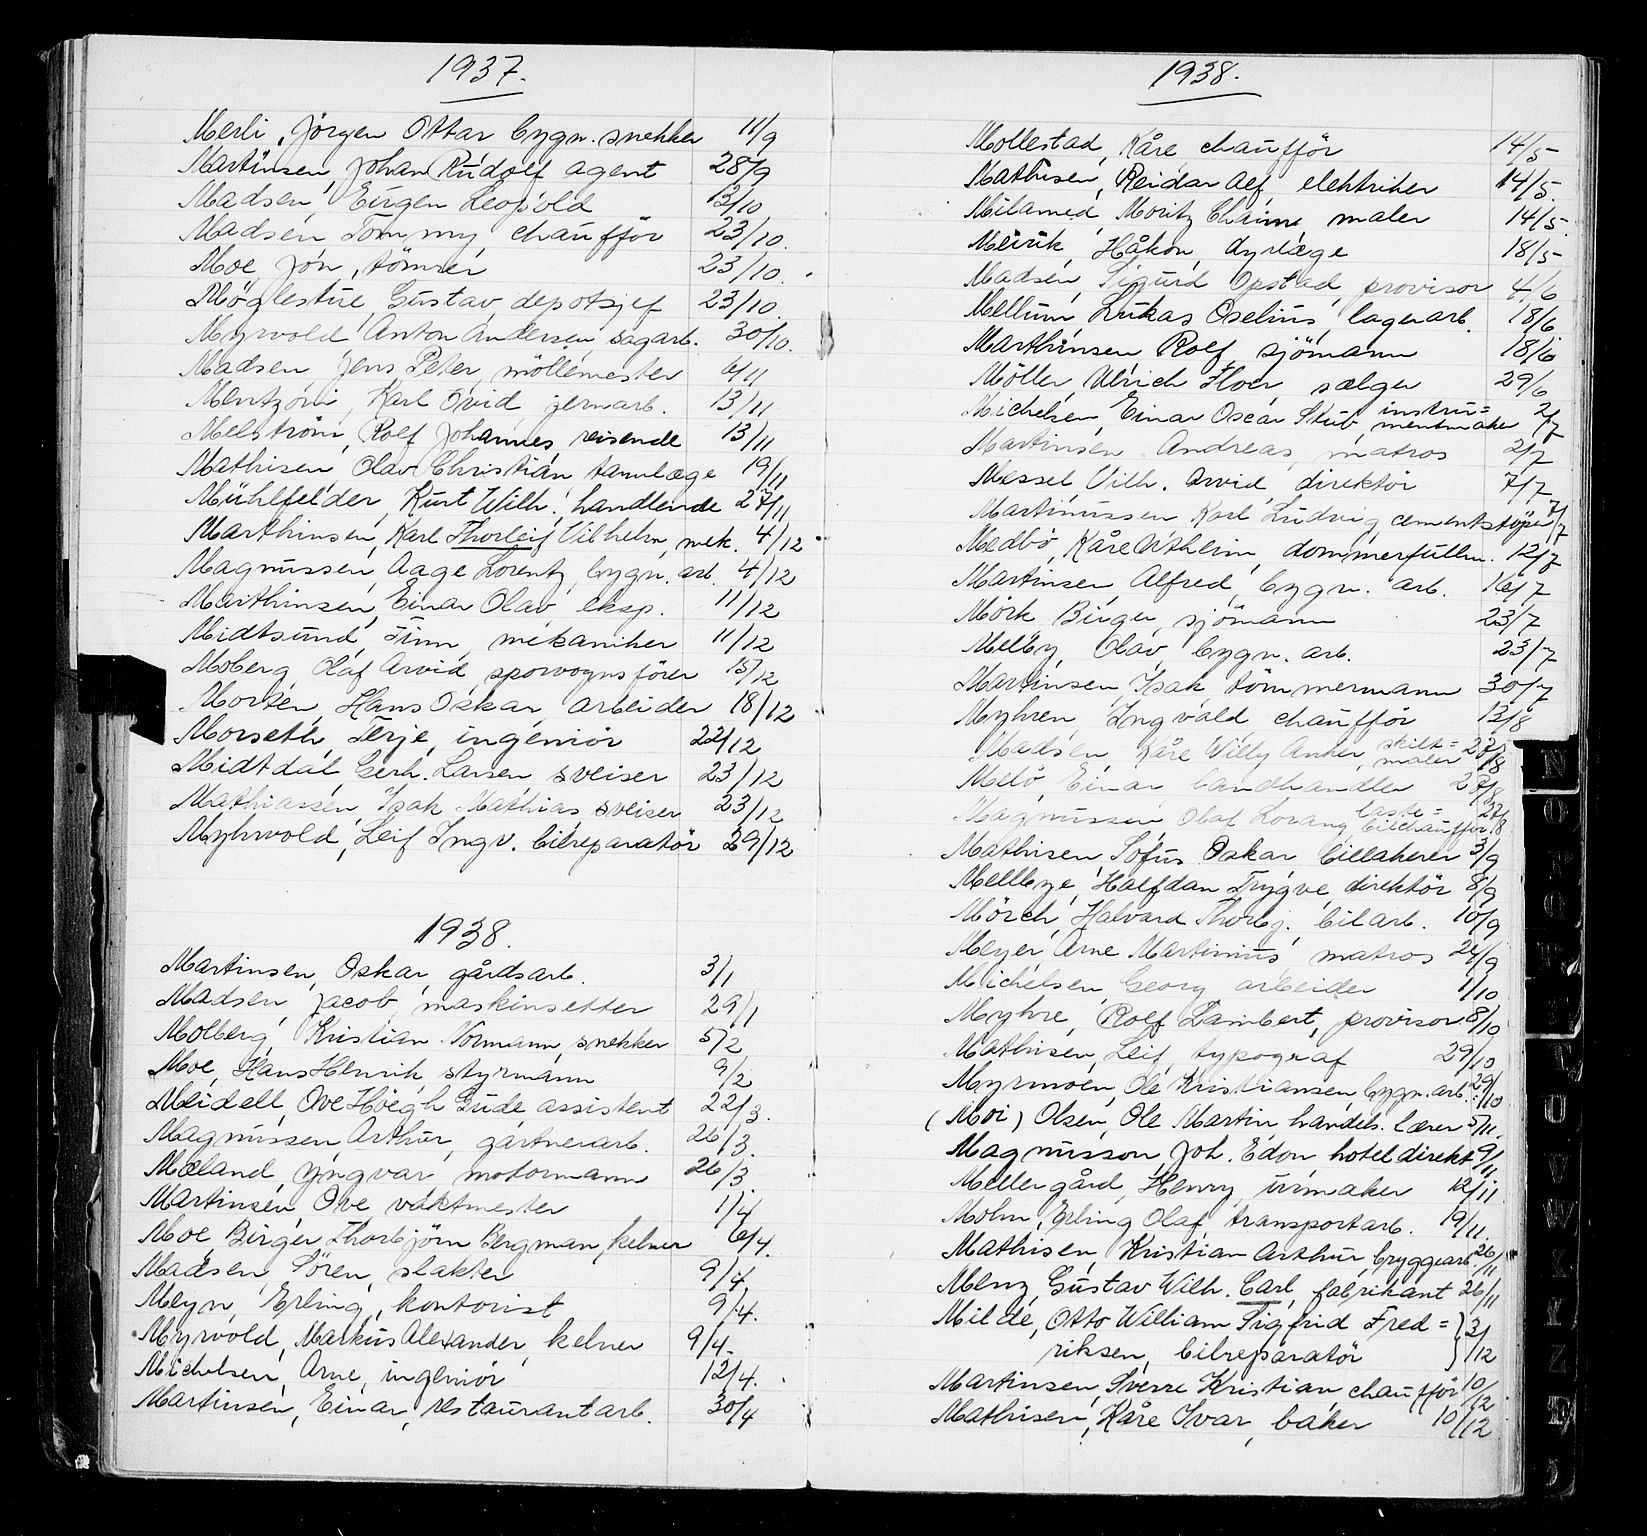 1937.
Merli, Jörgen Ottar bygn. snekker 11/9
Martinsen, Johan Rudolf agent 28/9
Madsen, Eirgen Leopold 13/10
Madsen Tommy, chaufför 23/10.
Moe Jon, tömrer 23/10.
Möglestue, Gustav, depotsjef 23/10.
Myrvold Anton Andersen, sagarb. 30/10.
Madsen, Jens Peter, möllemester 6/11
Mentzoni, Karl Ovid jernarb. 13/11
Melström, Rolf Johannes, reisende 13/11
Mathisen, Olav Christian tannlæge 19/11
Mühlfelder, Kurt Wilh. handlende 27/11
Marthinsen, Karl Thorleif Vilhelm, mek. 4/12
Magnussen, Aage Lorentz, bygn. arb. 4/12
Marthinsen, Einar Olav eksp. 11/12
Midtsund, Finn, mekaniker 11/12
Moberg, Olaf Arvid, sporvognsförer 15/12
Morten, Hans Oskar arbeider 18/12
Morseth, Terje, ingeniör 22/12
Midtdal, Gerh. Larsen sveiser 23/12
Mathiassen, Isak Mathias, sveiser 23/12
Myhrvold, Leif Ingv. bilreparatör 29/12
1938.
Martinsen, Oskar, gårdsarb. 3/1
Madsen, Jacob, maskinsetter 29/1
Molberg, Kristian Normann, snekker 5/2
Moe, Hans Henrik styrmann 9/2
Meidell, Ove Höegh Gude assistent 22/3.
Magnussen, Arthur, gartnerarb. 26/3.
Mæland, Yngvar motormann 26/3
Martinsen, Ove vaktmester 1/4
Moe, Birger Thorbjörn Bergman, kelner 6/4.
Madsen, Sören, slakter 9/4.
Meyn, Erling, kontorist 9/4.
Myrvold, Markus Alexander, kelner 9/4.
Michelsen, Arne, ingeniör 12/4.
Martinsen, Einar, restaurantarb. 30/4
1938.
Mollestad, Kåre chaufför 14/5
Mathisen, Reidar Alf, elektriker 14/5.
Milamed, Moritz Chaim, maler 14/5.
Meirik, Håkon, dyrlæge 18/5
Madsen, Sigurd Opstad, provisor 4/6
Mellum, Lukas Oselius, lagerarb. 18/6
Marthinsen, Rolf, sjömann 18/6
Möller, Ulrich Floer, sælger 29/6
Michelsen, Einar Oscar Stub, instru=
mentmaker 2/7
Martinsen, Andreas, matros 2/7
Messel Vilh. Arvid, direktör 7/7
Martinussen Karl Ludvig, cementstöper 7/7
Medbö, Kåre Altheim, dommerfullm. 12/7
Martinsen, Alfred, bygn. arb. 16/7
Mörk Birger, sjömann 23/7
Melby, Olav, bygn. arb. 23/7
Martinsen, Isak tömmermann 30/7
Myhren Ingvald chaufför 13/8
Madsen, Kåre Willy Anker, skilt=
maler 27/8
Melö, Einar landhandler 27/8
Magnussen Olaf Lorang, laste=
bilchaufför 27/8
Mathisen, Sofus Oskar billakerer 3/9
Mellbye, Halfdan Trygve, direktör 8/9
Mörch, Halvard Thorbj. bilarb. 10/9
Meyer Arne Martinius matros 24/9
Michelsen Georg arbeider 1/10
Myhre, Rolf Lambert, provisor 8/10
Mathisen, Leif, typograf 29/10
Myrmoen, Ole Kristiansen bygn. arb. 29/10
(Moi) Olsen, Ole Martin handels. lærer 5/11.
Magnusson, Joh. Edon hoteldirekt. 9/11
Mellergård, Henry, urmaker 12/11
Molm, Erling Olaf, transportarb. 19/11.
Mathisen, Kristian Arthur, bryggearb. 26/11
Menz, Gustav Wilh. Carl, fabrikant 26/11
Milde, Otto William Sigfrid Fred= } 3/12
riksen, bilreparatör
Martinsen, Sverre Kristian, chaufför 10/12
Mathisen, Kåre Ivar, baker 10/12
N
O
P
Q
R
S
T
U
V
W
X
Y
Z